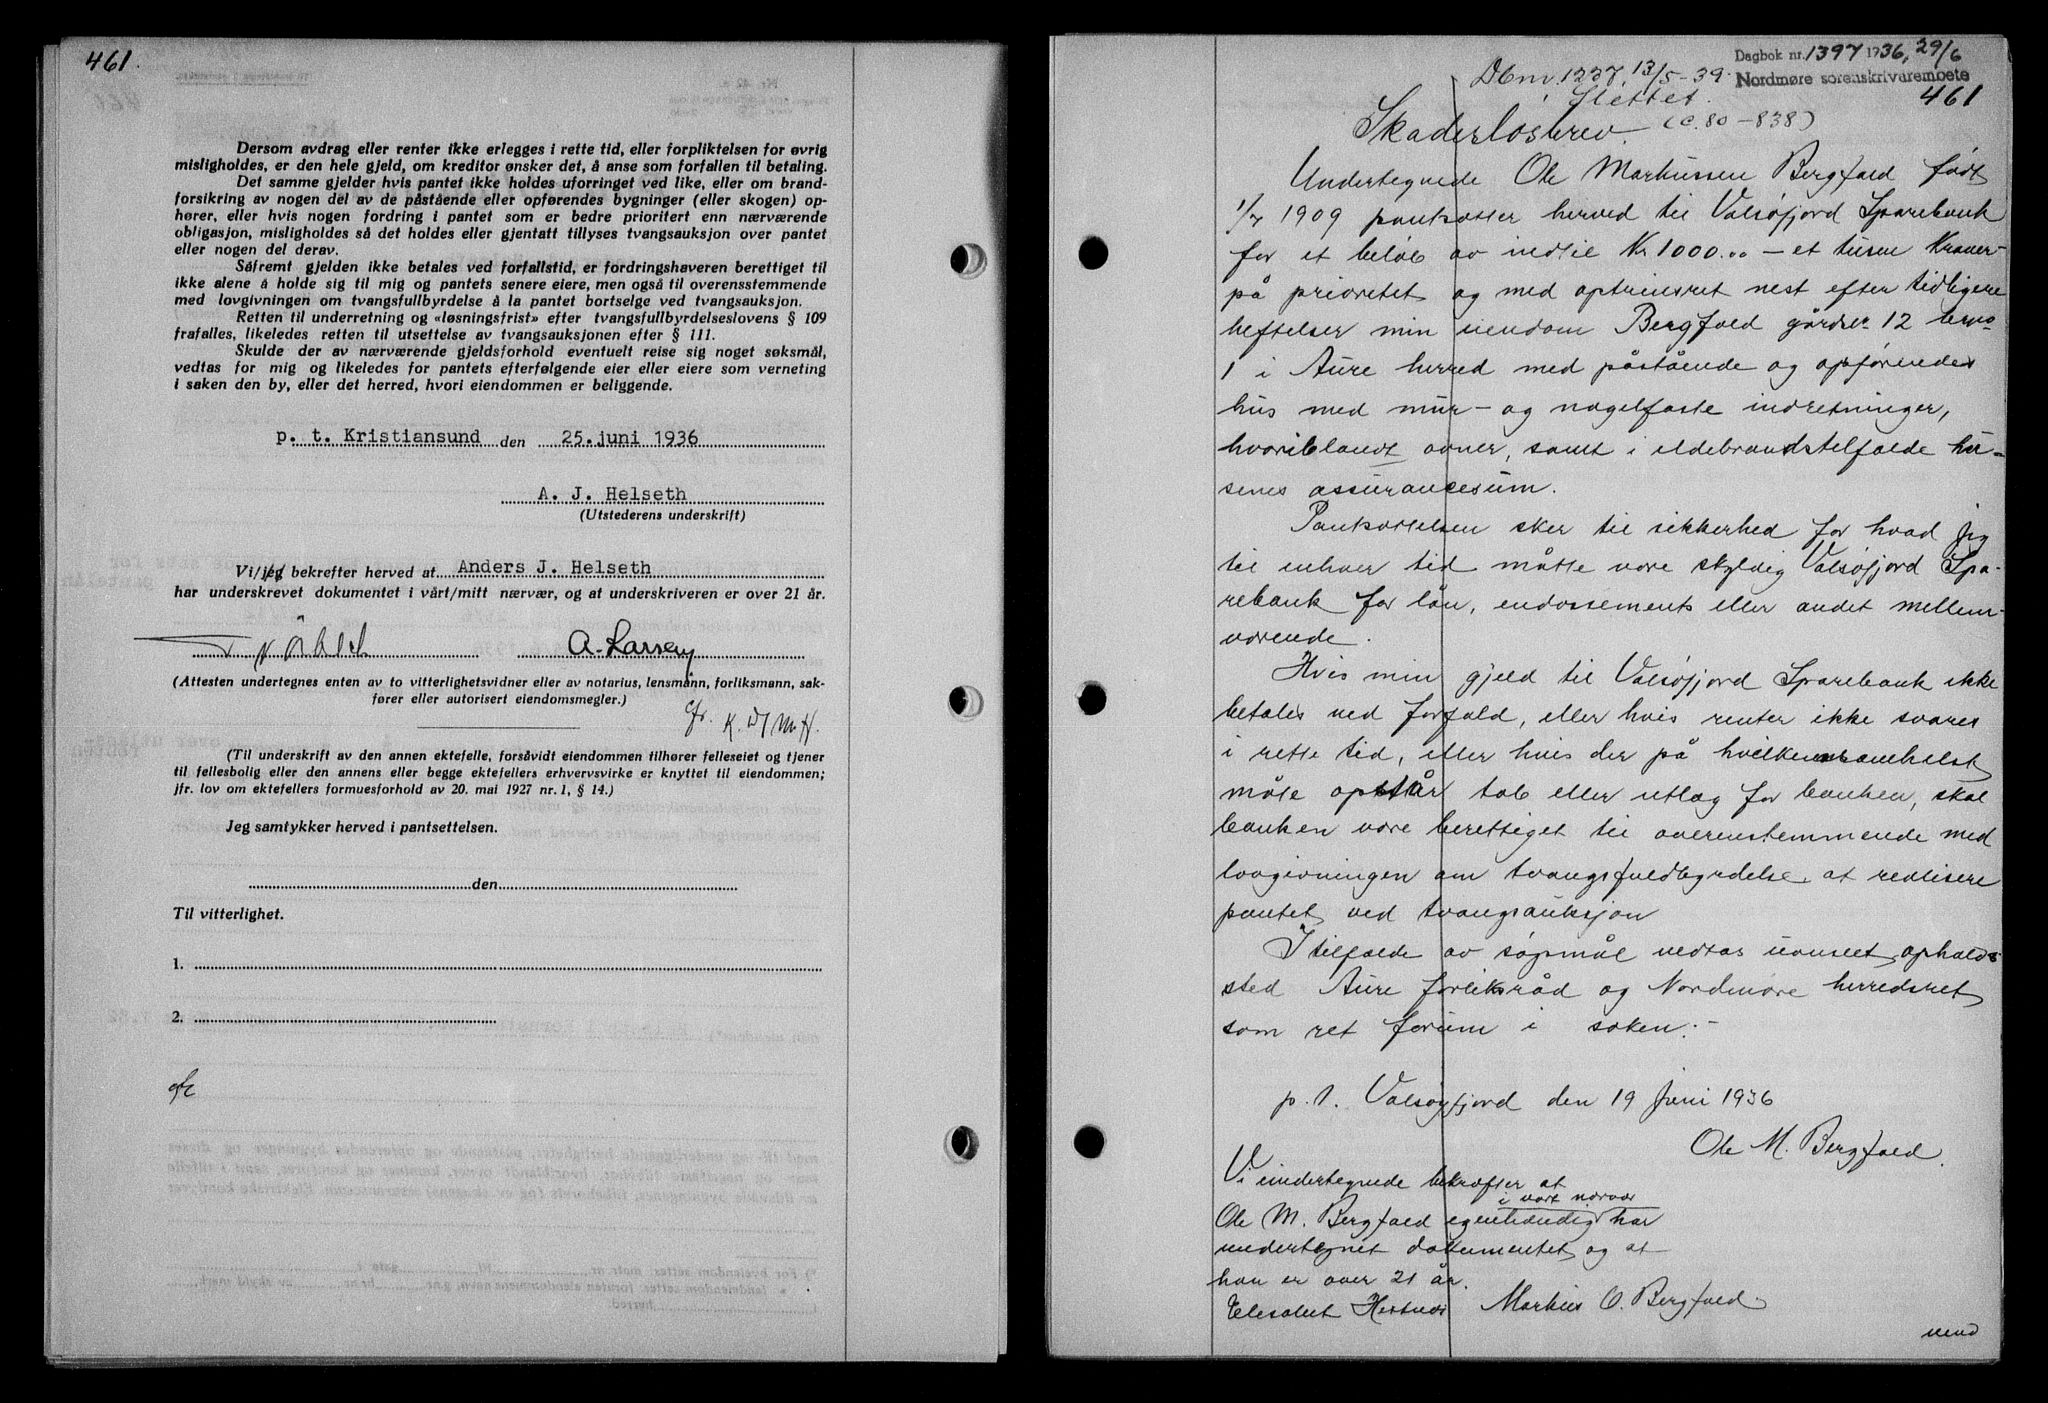 461
Dersom avdrag eller renter ikke erlegges i rette tid, eller forpliktelsen for øvrig
misligholdes, er den hele gjeld, om kreditor ønsker det, å anse som forfallen til betaling.
Det samme gjelder hvis pantet ikke holdes uforringet ved like, eller om brand-
forsikring av nogen del av de påstående eller opførendes bygninger (eller skogen) op-
hører, eller hvis nogen fordring i pantet som er bedre prioritert enn nærværende
obligasjon, misligholdes så det holdes eller gjentatt tillyses tvangsauksjon over pantet
eller nogen del derav.
Såfremt gjelden ikke betales ved forfallstid, er fordringshaveren berettiget til
ikke alene å holde sig til mig og pantets senere eiere, men også til overensstemmende
med lovgivningen om tvangsfullbyrdelse å la pantet bortselge ved tvangsauksjon.
Retten til underretning og «løsningsfrist» efter tvangsfullbyrdelseslovens § 109
frafalles, likeledes retten til utsettelse av tvangsauksjonen efter § 111.
Skulde der av nærværende gjeldsforhold eventuelt reise sig noget søksmål,
vedtas for mig og likeledes for pantets efterfølgende eier eller eiere som verneting
i saken den by, eller det herred, hvori eiendommen er beliggende.
p. t. Kristiansund den 25. juni 1936
A. J. Helseth
(Utstederens underskrift)
Vi/jeg bekrefter herved at Anders J. Helseth
har underskrevet dokumentet i vårt/mitt nærvær, og at underskriveren er over 21 år.
A. Larsen
(Attesten undertegnes enten av to vitterlighetsvidner eller av notarius, lensmann, forliksmann, sak-
fører eller autorisert eiendomsmegler.)
(Til underskrift av den annen ektefelle, forsåvidt eiendommen tilhører felleseiet og tjener
til fellesbolig eller den annens eller begge ektefellers erhvervsvirke er knyttet til eiendommen;
jfr. lov om ektefellers formuesforhold av 20. mai 1927 nr. 1, § 14.)
Jeg samtykker herved i pantsettelsen.
den
Til vitterlighet.
1.
2.
Dagbok nr. 1397 1936, 29/6
Nordmøre sorenskriverembete
461
Dbnr. 1227, 13/5-39.
Slettet.
Skadesløsbrev. (C. 80-838)
Undertegnede Ole Markussen Bergfald født
1/7 1909 pantsætter herved til Valsøfjord Sparebank
for et beløb av indtil Kr 1000.00 – et tusen Kroner –
på prioritet og med optrinsret nest efter tidligere
heftelser min eiendom Bergfald gårdsnr 12 brno
1 i Aure herred med påstående og opførendes
hus med mur- og nagelfaste indretninger,
hvoriblandt ovner, samt i ildebrandstilfælde hu-
senes assurancesum.
Pantsættelsen sker til sikkerhed for hvad jeg
til enhver tid måtte være skyldig Valsøfjord Spa-
rebank for lån, endossements eller andet mellem-
værende.
Hvis min gjeld til Valsøfjord Sparebank ikke
betales ved forfald, eller hvis renter ikke svares
i rette tid, eller hvis der på hvilkensomhelst
måte opstår tab eller utlæg for banken, skal
banken være berettiget til overenstemmende med
lovgivningen om tvangsfuldbyrdelse at realisere
pantet ved tvangsauksjon
I tilfælde av søgsmål vedtas uanseet ophold-
sted Aure forliksråd og Nordmøre herredsret
som ret forum i saken. –
p. t. Valsøyfjord den 19 Juni 1936
Ole M. Bergfald.
Vi undertegnede bekræfter at
i vort nærvær
Ole M. Bergfald egenhændig har
undertegnet dokumentet og at
han er over 21 år.
Elesabet Hestnes Markus O. Bergfald
vend